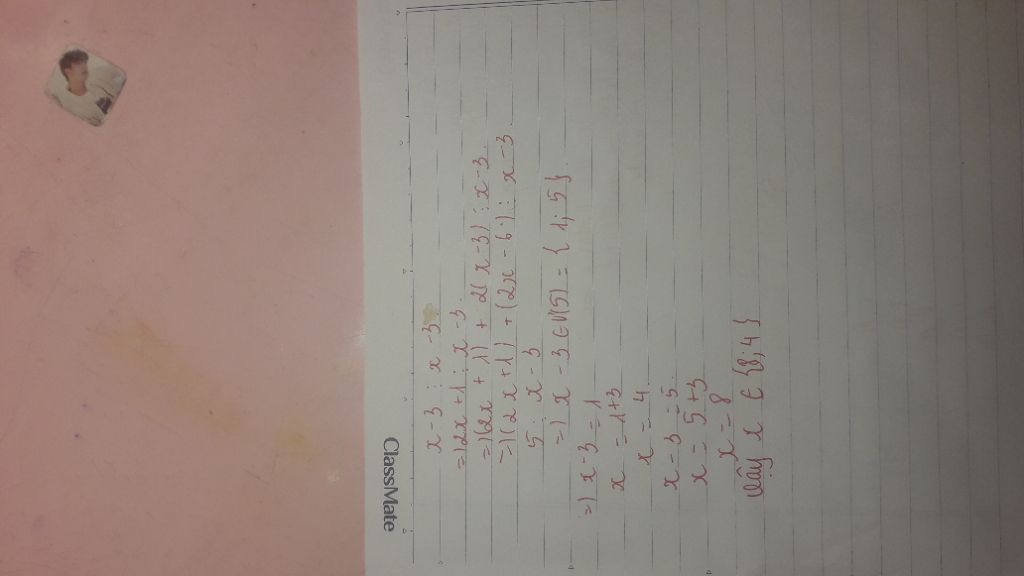 ClassMate
x-3 ⋮ x-3
=) 2x+1 ⋮ x-3.
=) (2x + 1) + 2(x-3) ⋮ x-3.
=) (2x+1) + (2x-6) ⋮ x-3.
5 ⋮ x-3
=) x-3 ∈ Ư(5) = { 1; 5}.
=) x-3 = 1
x = 1+3
x = 4.
x-3 = 5
x = 5+3
x = 8
Vậy x ∈ {8;4}